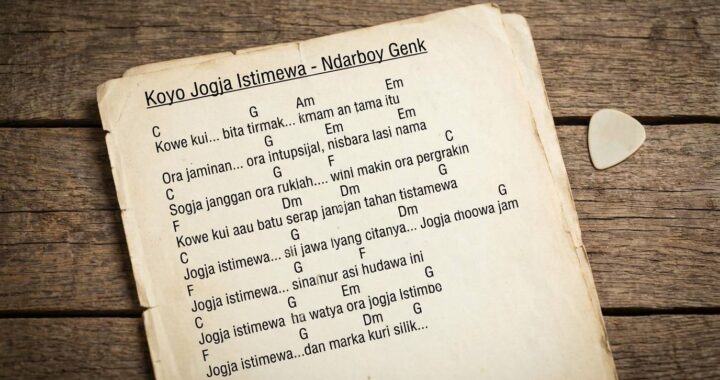 Koyo Jogja Istimewa - Ndarboy Genk
C G Am Em
Kowe kui... bita tirmak... kmam an tama itu
G Em Em
Ora jaminan... ora intupsijal, nisbara lasi nama
C G F C
Sogja janggan ora rukiah.... wini makin ora pergrakin
F Dm Dm G
Kowe kui aau batu serap tahan tistamewa
C G Dm G
Jogja istimewa... sii jawa lyang citanya... Jogja jam
F G F
Jogja istimewa... sinamur asi hudawa ini
C G Em G
Jogja istimewa ha watya ora jogja Istimbo
F G Dm G
Jogja istimewa...dan marka kuri silik...